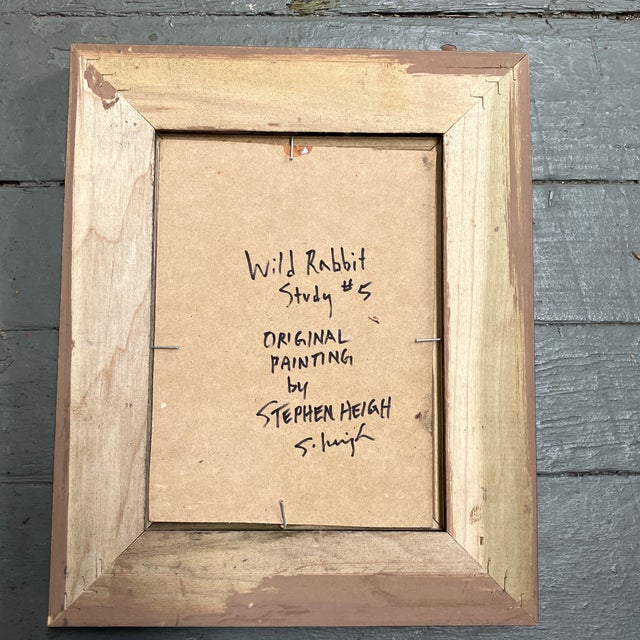 Wild Rabbit
Study #5
ORIGINAL
PAINTING
by
STEPHEN HEIGH
S. Heigh